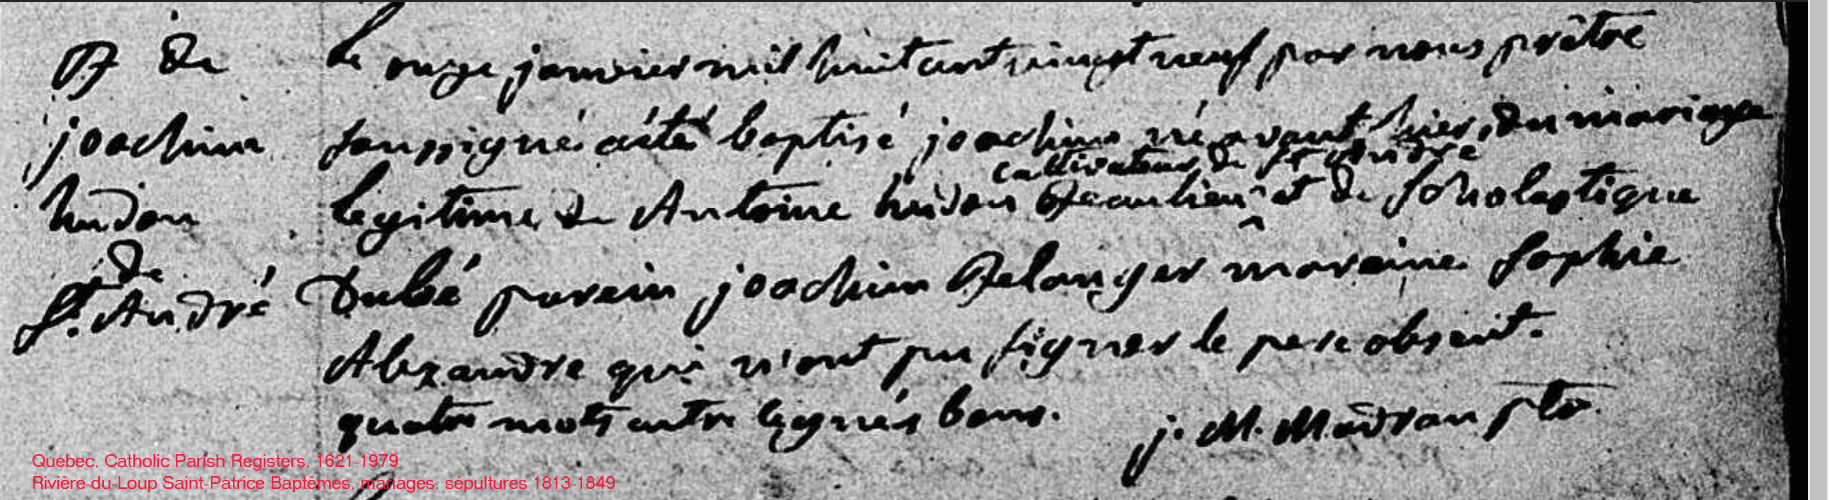 B de
joachim
hudon
de
St. André
le onze janvier mil huit cent vingt neuf par nous prêtre
soussigné a été baptisé joachim né avant hier, du mariage
cultivateur de St André
legitime de Antoine hudon Beaulieu ^ et de Scholastique
Dubé parein joachim Belanger maraine Sophie
Alexandre qui n'ont pu signer le pere absent.
quatre mots entre lignés bons.
j. M. Madran ptre
Quebec, Catholic Parish Registers, 1621-1979
Rivière-du-Loup Saint-Patrice Baptêmes, mariages, sépultures 1813-1849